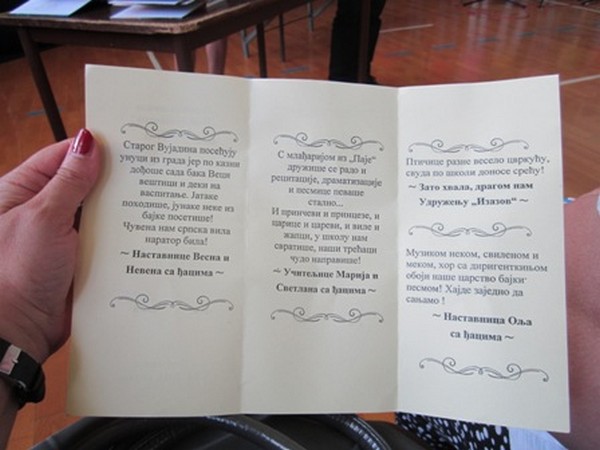 Старог Вујадина посећују
унуци из града јер по казни
дођоше сада бака Веци
вештици и деки на
васпитање. Јатаке
походише, јунаке неке из
бајке посетише!
Чувена нам српска вила
наратор била!
~ Наставнице Весна и
Невена са ђацима ~
С млађаријом из „Паје“
дружише се радо и
рецитације, драматизације
и песмице певаше
стално...
И принчеви и принцезе, и
царице и цареви, и виле и
жапци, у школу нам
свратише, наши трећаци
чудо направише!
~ Учитељице Марија и
Светлана са ђацима ~
Птичице разне весело цвркућу,
свуда по школи доносе срећу!
~ Зато хвала, драгом нам
Удружењу „Изазов“ ~
Музиком неком, свиленом и
меком, хор са диригенткињом
обоји наше царство бајки
песмом! Хајде заједно да
сањамо !
~ Наставница Оља
са ђацима ~